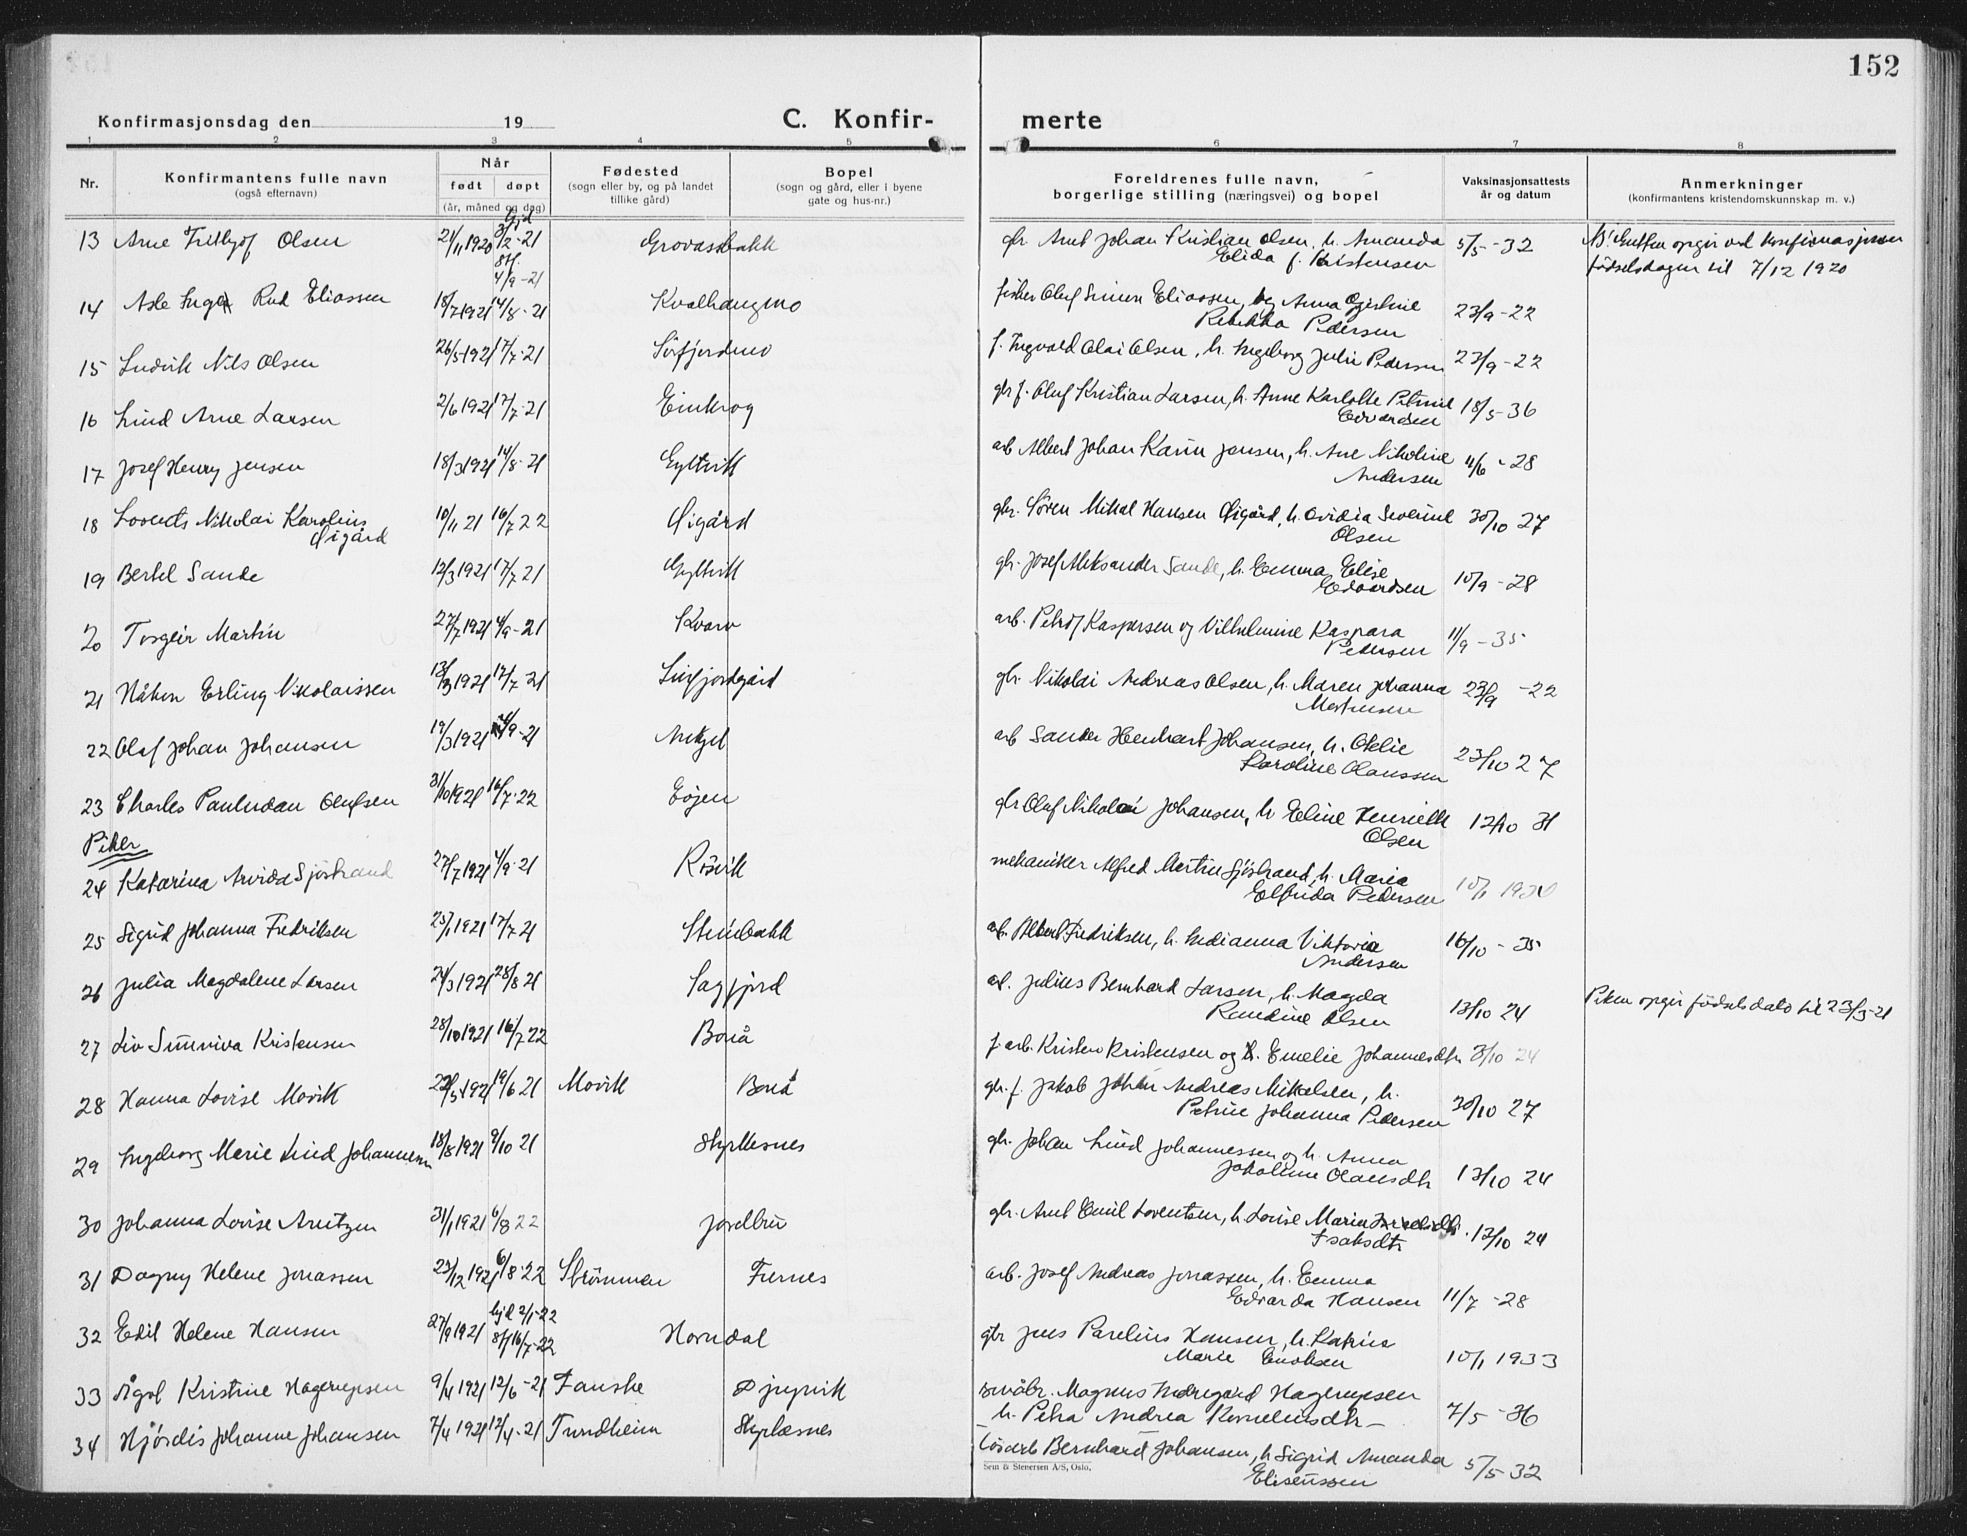 152
Konfirmasjonsdag den 19
C. Konfir-
merte
1 2 3 4 5 6 7 8
Nr.
Konfirmantens fulle navn
(også efternavn)
Når
født døpt
(år, måned og dag)
Fødested
(sogn eller by, og på landet
tillike gård)
Bopel
(sogn og gård, eller i byene
gate og hus-nr.)
Foreldrenes fulle navn,
borgerlige stilling (næringsvei) og bopel
Vaksinasjonsattests
år og datum
Anmerkninger
(konfirmantens kristendomskunnskap m. v.)
13 Arne Olsen 21/11 1920 hjd 3/12-21 st. 4/9-21 Grovassbakk gbr Arnt Johan Kristian Olsen, h. Amanda 5/5-32 opgir ved konfirmasjonen
Elida f. Kristensen fødselsdagen til 7/12 1920
14 Asle Rud Eliassen 18/7 1921 14/8-21 Kvalhaugmo fisker Oluf Simon Eliassen, og Anna 23/9-22
Rebekka Pedersen
15 Ludvik Nils Olsen 26/5 1921 17/7-21 Sörfjordmo f. Ingvald Olai Olsen, h. Ingeborg Julie Pedersen 23/9-22
16 Lind Arne Larsen 2/6 1921 17/7-21 Einkrog gbr f. Oluf Kristian Larsen, h. Anne Karlotte Petrine 18/5-36
Edvardsen
17 Josef Henry Jensen 18/3 1921 14/8-21 Gyltvik arb Albert Johan Jensen, h. Ane Nikoline 11/6-28
Andersen
18 Lorents Nikolai Karolius 10/11 21 16/7 22 Øigård gbr. Sören Mikal Hansen Øigård, h. Ovidia Severine 30/10 27
Øigård Olsen
19 Bertel Sande 12/3 1921 17/7 21 Gyltvik gbr. Josef Aleksander Sande, h. Emma Elise 10/9-28
Edvardsen
20 Torgeir Martin 27/7 1921 4/9-21 Kvarv arb. Petrof Kaspersen og Vilhelmine Kaspara 11/9-35
Pedersen
21 Håkon Erling Nikolaissen 13/3 1921 17/7 21 gbr. Nikolai Andreas Olsen, h. Maren Johanna 23/9-22
Mortensen
22 Olaf Johan Johansen 19/3 1921 4/9-21 arb Sander Johansen, h. Otelie 23/10 27
Karoline Olaussen
23 Charles Pauludan Olufsen 31/10 1921 16/7-22 Eöjen gbr Oluf Nikolai Johansen, h Eline Henriette 12/10 31
Olsen
Piker
24 Katarina Arvida Sjöstrand 27/7 1921 4/9-21 Rösvik mekaniker Alfred Martin Sjöstrand, h. Maria 10/1
Elfrida Pedersen
25 Sigrid Johanna Fredriksen 25/1 1921 17/7 21 Steinbakk arb. Albert Fredriksen, h. Indianna Viktoria 16/10-35
Andersen
26 Julia Magdalene Larsen 24/3 1921 28/8 21 Sagfjord arb. Julius Bernhard Larsen, h. Magda 13/10 24 Piken opgir födselsdato til 23/3-21
Rundine Olsen
27 Liv Sunniva Kristensen 28/10 1921 16/7 22 Bonå f. arb. Kristen Kristensen og h. Emelie Johannesdtr 3/10 24
28 Hanna Lovise Movik 1921 19/6 21 Movik Bonå gbr. f. Jakob Johan Andreas Mikkelsen, h. 30/10 27
Petrine Johanna Pedersen
29 Ingeborg Marie Lind Johannessen 18/8 1921 9/10 21 Styrkesnes gbr. Johan Lind Johannessen og h. Anna 13/10 24
Jakobine Olausdtr
30 Johanna Lovise Arntzen 31/1 1921 6/8 22 Jordbru gbr. Arnt Emil Lorentsen, h. Lovise Maria 13/10 24
Isaksdtr
31 Dagny Helene Jonassen 23/12 1921 6/8-22 Strömmen Furnes arb. Josef Andreas Jonassen, h. Emma 11/7-28
Edvarda Hansen
32 Edil Helene Hansen 27/9 1921 hjd 2/1-22 st 16/7-22 Horndal gbr Jens Parelius Hansen, h. Katrine 10/1 1933
Marie Enoksen
33 Aågot Kristine Hagerupsen 9/4 1921 12/6-21 Fauske Djupvik småbr. Magnus Indregard Hagerupsen 7/5-36
h. Petra Andrea Korneliusdtr
34 Hjördis Johanne Johansen 7/4 1921 12/4-21 Trondheim Styrkesnes lösarb Bernhard Johansen, h Sigrid Amanda 5/5-32
Eliseussen
Sem & Stenersen A/S, Oslo.